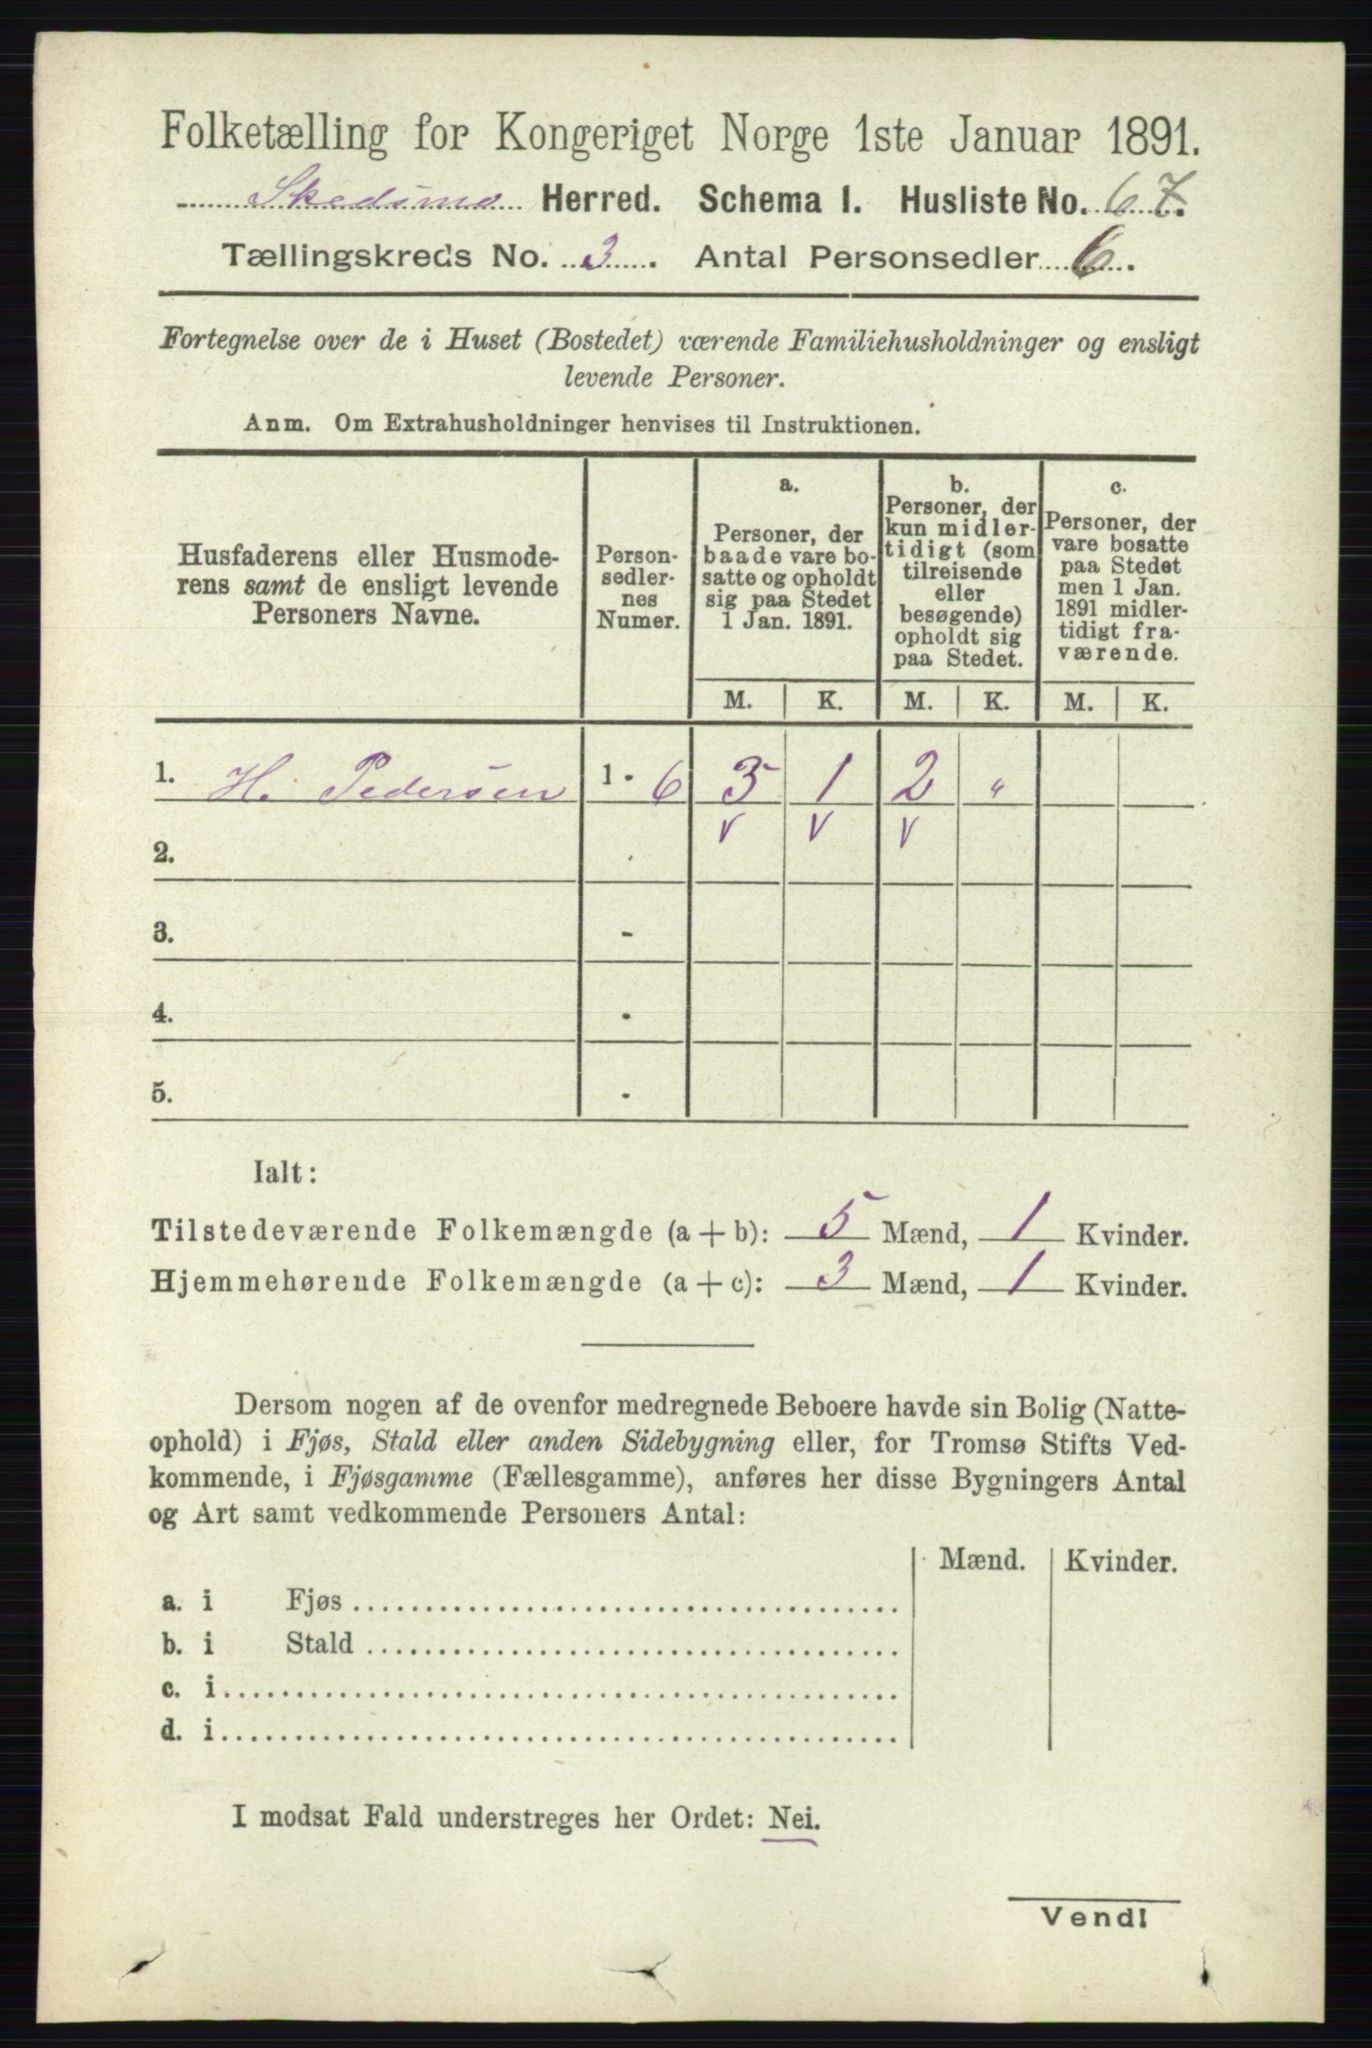 Folketælling for Kongeriget Norge 1ste Januar 1891.
Skedsmo Herred. Schema I. Husliste No. 67.
Tællingskreds No. 3. Antal Personsedler 6.
Fortegnelse over de i Huset (Bostedet) værende Familiehusholdninger og ensligt
levende Personer.
Anm. Om Extrahusholdninger henvises til Instruktionen.
Husfaderens eller Husmode-
rens samt de ensligt levende
Personers Navne.
Person-
sedler-
nes
Numer.
a.
Personer, der
baade vare bo-
satte og opholdt
sig paa Stedet
1 Jan. 1891.
b.
Personer, der
kun midler-
tidigt (som
tilreisende
eller
besøgende)
opholdt sig
paa Stedet.
c.
Personer, der
vare bosatte
paa Stedet
men 1 Jan.
1891 midler-
tidigt fra-
værende.
M. K. M. K. M. K.
1. H. Pedersen 1 - 6 3 1 2 "
v v v
2. -
3. -
4. -
5. -
Ialt:
Tilstedeværende Folkemængde (a + b): 5 Mænd, 1 Kvinder.
Hjemmehørende Folkemængde (a + c): 3 Mænd, 1 Kvinder.
Dersom nogen af de ovenfor medregnede Beboere havde sin Bolig (Natte-
ophold) i Fjøs, Stald eller anden Sidebygning eller, for Tromsø Stifts Ved-
kommende, i Fjøsgamme (Fællesgamme), anføres her disse Bygningers Antal
og Art samt vedkommende Personers Antal:
Mænd. Kvinder.
a. i Fjøs
b. i Stald
c. i
d. i
I modsat Fald understreges her Ordet: Nei.
Vend!